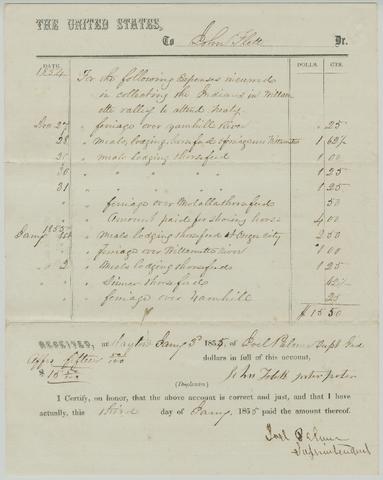 THE UNITED STATES,
To John Flett Dr.
DATE. DOLLS. CTS.
1854. For the following Expenses incurred
in collecting the Indians in Willam
ette valley to attend treaty
Dec 27 " feriage over Yamhill River " 25
28 " meals, lodging, horsefeed & feriage over Willamette 1 62½
29 " meals lodging & horsefeed 1 00
30 " " " " 1 25
31 " " " " 1 25
" feriage over Molalla & horsefeed 50
" Amount paid for shoeing horse 4 00
1855 Jany 1st " Meals lodging & horsefeed at Oregon City 2 50
" feriage over Willamette River 1 00
" 2 " Meals lodging & horsefeed 1 25
" Dinner & horsefeed 62½
" feriage over Yamhill 25
$ 15 50
RECEIVED, at Dayton Jany 3d 1855, of Joel Palmer Supt Ind
Affrs fifteen 50/100 dollars in full of this account,
$15 50/100
John Flett interpreter
(Duplicates)
I Certify, on honor, that the above account is correct and just, and that I have
actually, this third day of Jany. 1855 paid the amount thereof.
Joel Palmer
Superintendent